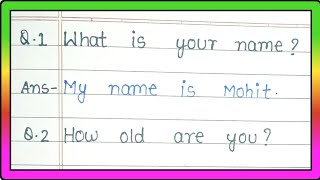 Q.1 What is your name?
Ans- My name is Mohit.
Q.2 How old are you?